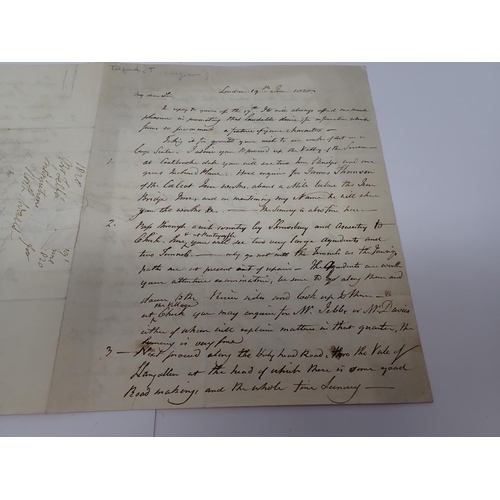 Telford T
London 19th June 1820
My dear Sir
In reply to yours of the 17th It will always afford me much
pleasure in promoting that laudable desire for information which
forms so prominent a feature of your Character —
Taking it for granted your wish to see works of art on a
large scale. I advise you to proceed up the Valley of the Severn
1. at Coalbrook dale you will see two Iron Bridges and one
Here enquire for James Thomson
of the Calcot Iron works, about a Mile below the Iron
Bridge Inn, and on mentioning my Name he will shew
you the works &c — The Scenery is also fine here
2. Pass through a rich country by Shrewsbury and Oswestry to
Chirk. here & at Pontcysylte you will see two very large Aqueducts and
two Tunnels — why go not into the Tunnels as the Towing
path are at present out of repair — The Aqueducts are worth
your attentive examination, be sure to go along them and
down to the River sides and look up to them —
at the Village Chirk you may enquire for Mr. Jebb or Mr. Davies
either of whom will explain matters in that quarter, the
Scenery is very fine
3 — Next proceed along the Holyhead Road, thro the Vale of
Llangollen at the head of which there is some good
Road making, and the whole fine Scenery —
1820
19
June
1820